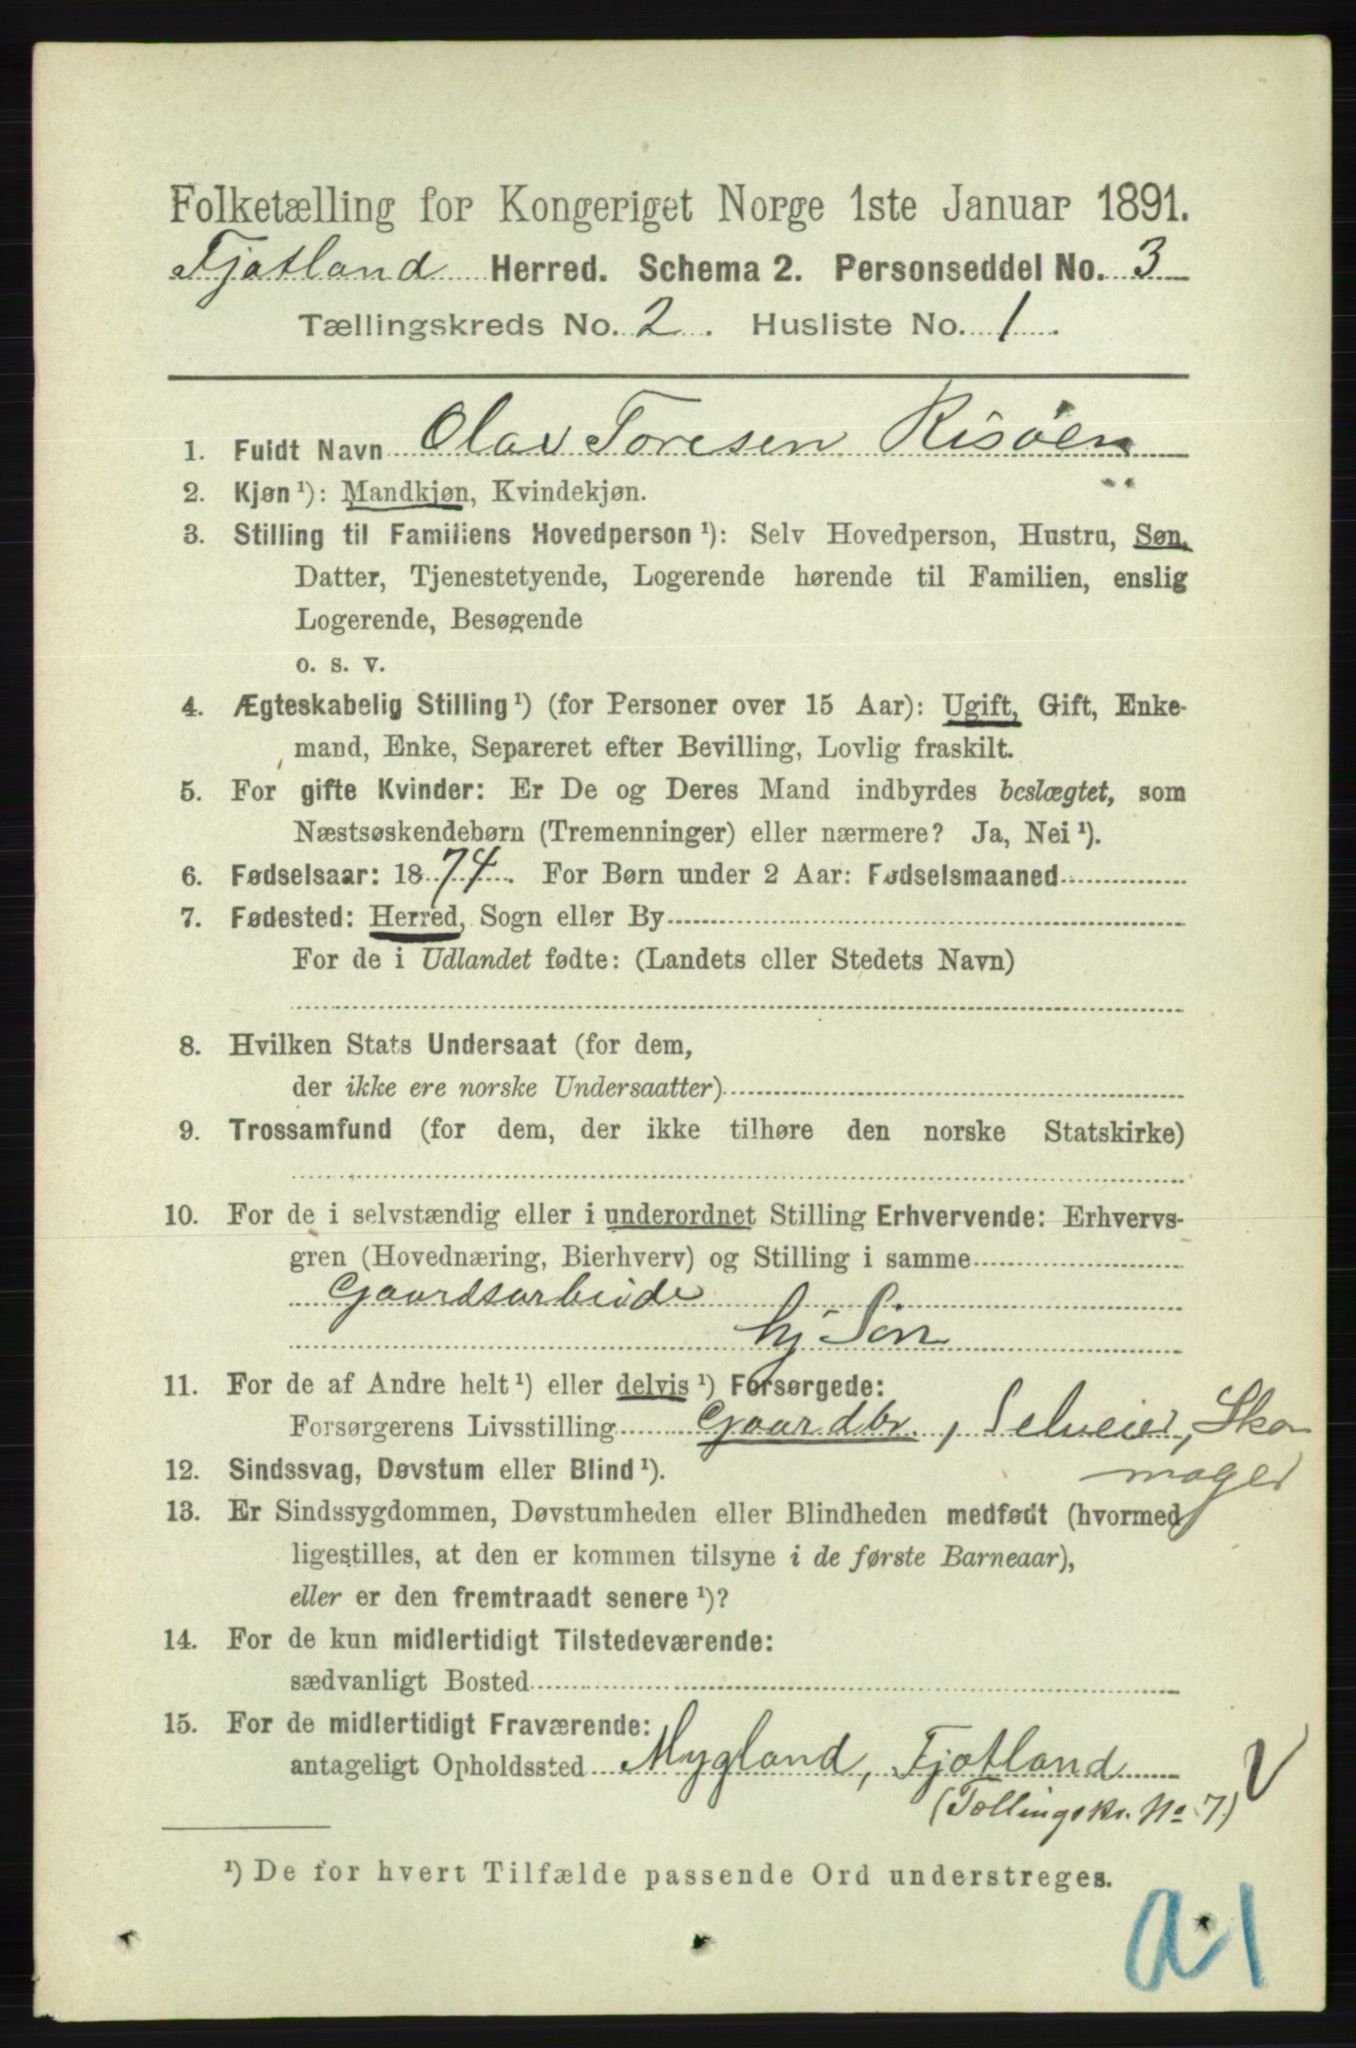 Folketælling for Kongeriget Norge 1ste Januar 1891.
Fjotland Herred. Schema 2. Personseddel No. 3
Tællingskreds No. 2. Husliste No. 1.
1. Fuldt Navn Olav Toresen Risöen
2. Kjøn ¹): Mandkjøn, Kvindekjøn.
3. Stilling til Familiens Hovedperson ¹): Selv Hovedperson, Hustru, Søn,
Datter, Tjenestetyende, Logerende hørende til Familien, enslig
Logerende, Besøgende
o. s. v.
4. Ægteskabelig Stilling ¹) (for Personer over 15 Aar): Ugift, Gift, Enke-
mand, Enke, Separeret efter Bevilling, Lovlig fraskilt.
5. For gifte Kvinder: Er De og Deres Mand indbyrdes beslægtet, som
Næstsøskendebørn (Tremenninger) eller nærmere? Ja, Nei ¹).
6. Fødselsaar: 1874. For Børn under 2 Aar: Fødselsmaaned
7. Fødested: Herred, Sogn eller By
For de i Udlandet fødte: (Landets eller Stedets Navn)
8. Hvilken Stats Undersaat (for dem,
der ikke ere norske Undersaatter)
9. Trossamfund (for dem, der ikke tilhøre den norske Statskirke)
10. For de i selvstændig eller i underordnet Stilling Erhvervende: Erhvervs-
gren (Hovednæring, Bierhverv) og Stilling i samme
Gaardsarbeide
hj. Sön
11. For de af Andre helt ¹) eller delvis ¹) Forsørgede:
Forsørgerens Livsstilling Gaardbr., Selveier, Sko
mager
12. Sindssvag, Døvstum eller Blind ¹).
13. Er Sindssygdommen, Døvstumheden eller Blindheden medfødt (hvormed
ligestilles, at den er kommen tilsyne i de første Barneaar),
eller er den fremtraadt senere ¹)?
14. For de kun midlertidigt Tilstedeværende:
sædvanligt Bosted
15. For de midlertidigt Fraværende:
antageligt Opholdssted Mygland, Fjotland V
(Tællingskr. No. 7.)
¹) De for hvert Tilfælde passende Ord understreges.
a 1